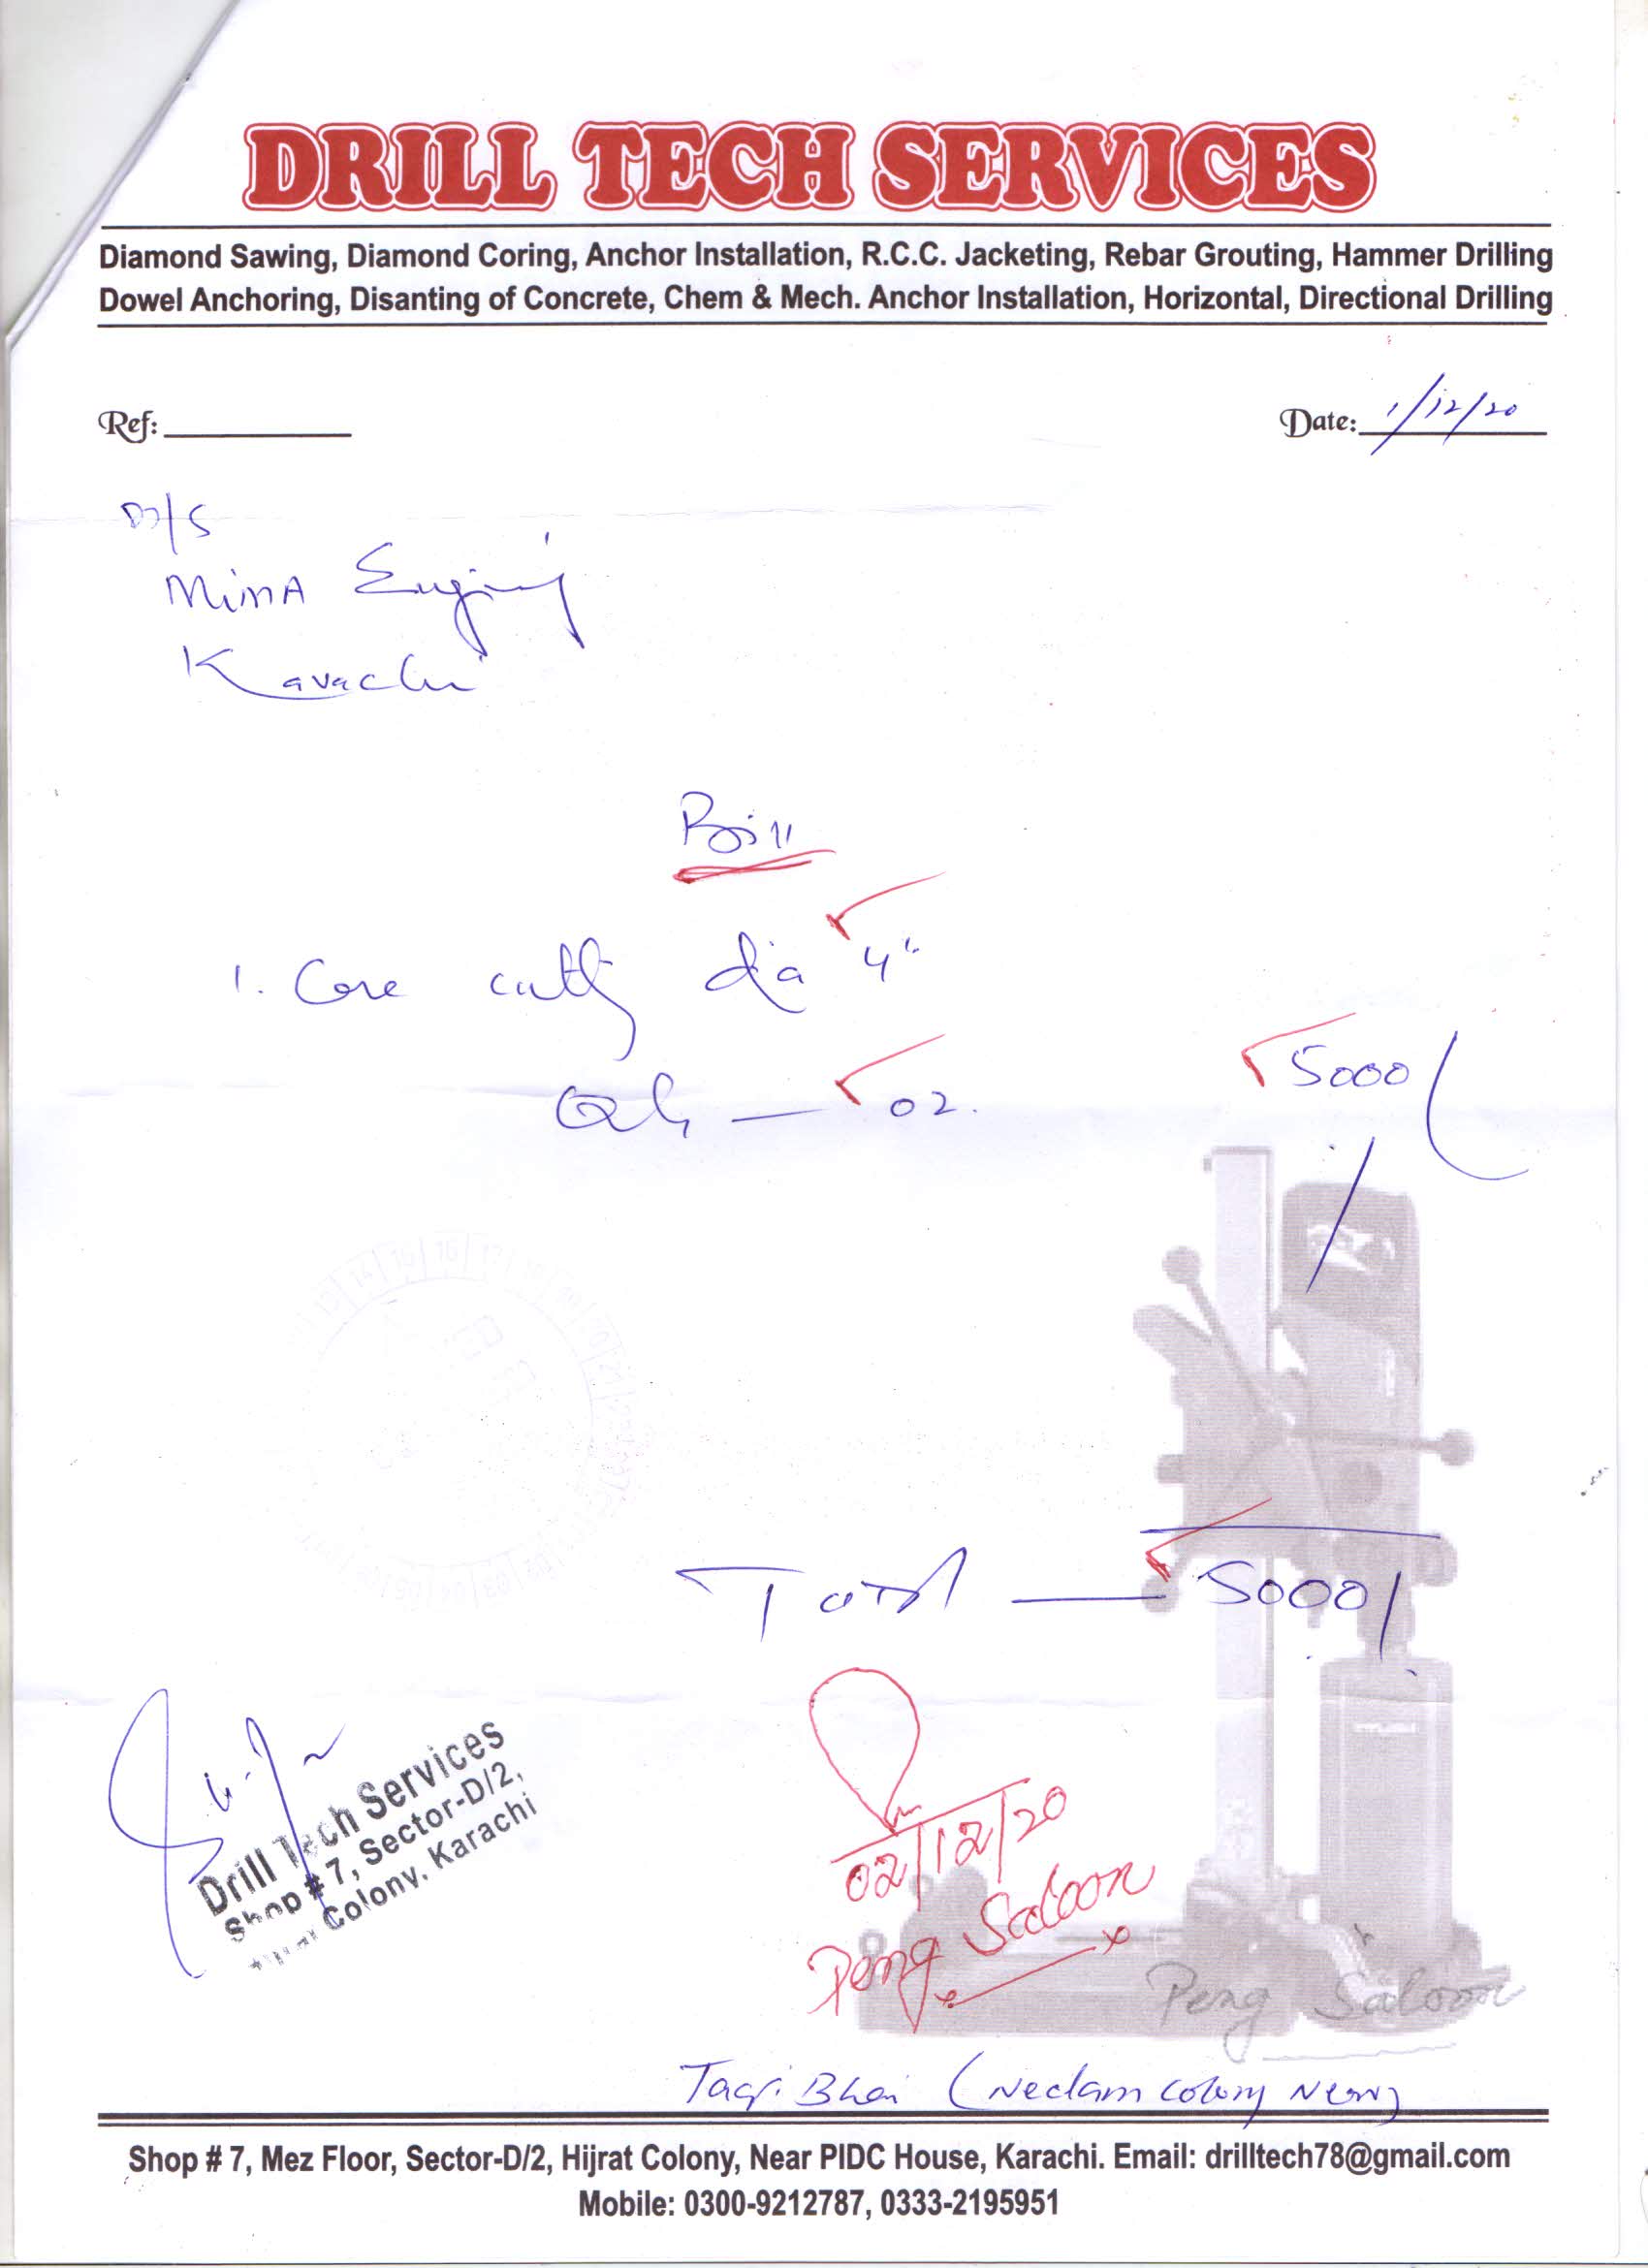 DRILL TECH SERVICES
Diamond Sawing, Diamond Coring, Anchor Installation, R.C.C. Jacketing, Rebar Grouting, Hammer Drilling
Dowel Anchoring, Disanting of Concrete, Chem & Mech. Anchor Installation, Horizontal, Directional Drilling
Ref:
Date: 1/12/20
M/S
MimA
Karachi
Bill
1. Core cutting dia 4"
Qty — 02.
5000/
Total — 5000/
Drill Tech Services
Shop # 7, Sector-D/2,
Colony, Karachi
02/12/20
Peng Saloon
Peng Saloon
Taqi Bhai (Neelam Colony
Shop # 7, Mez Floor, Sector-D/2, Hijrat Colony, Near PIDC House, Karachi. Email: drilltech78@gmail.com
Mobile: 0300-9212787, 0333-2195951